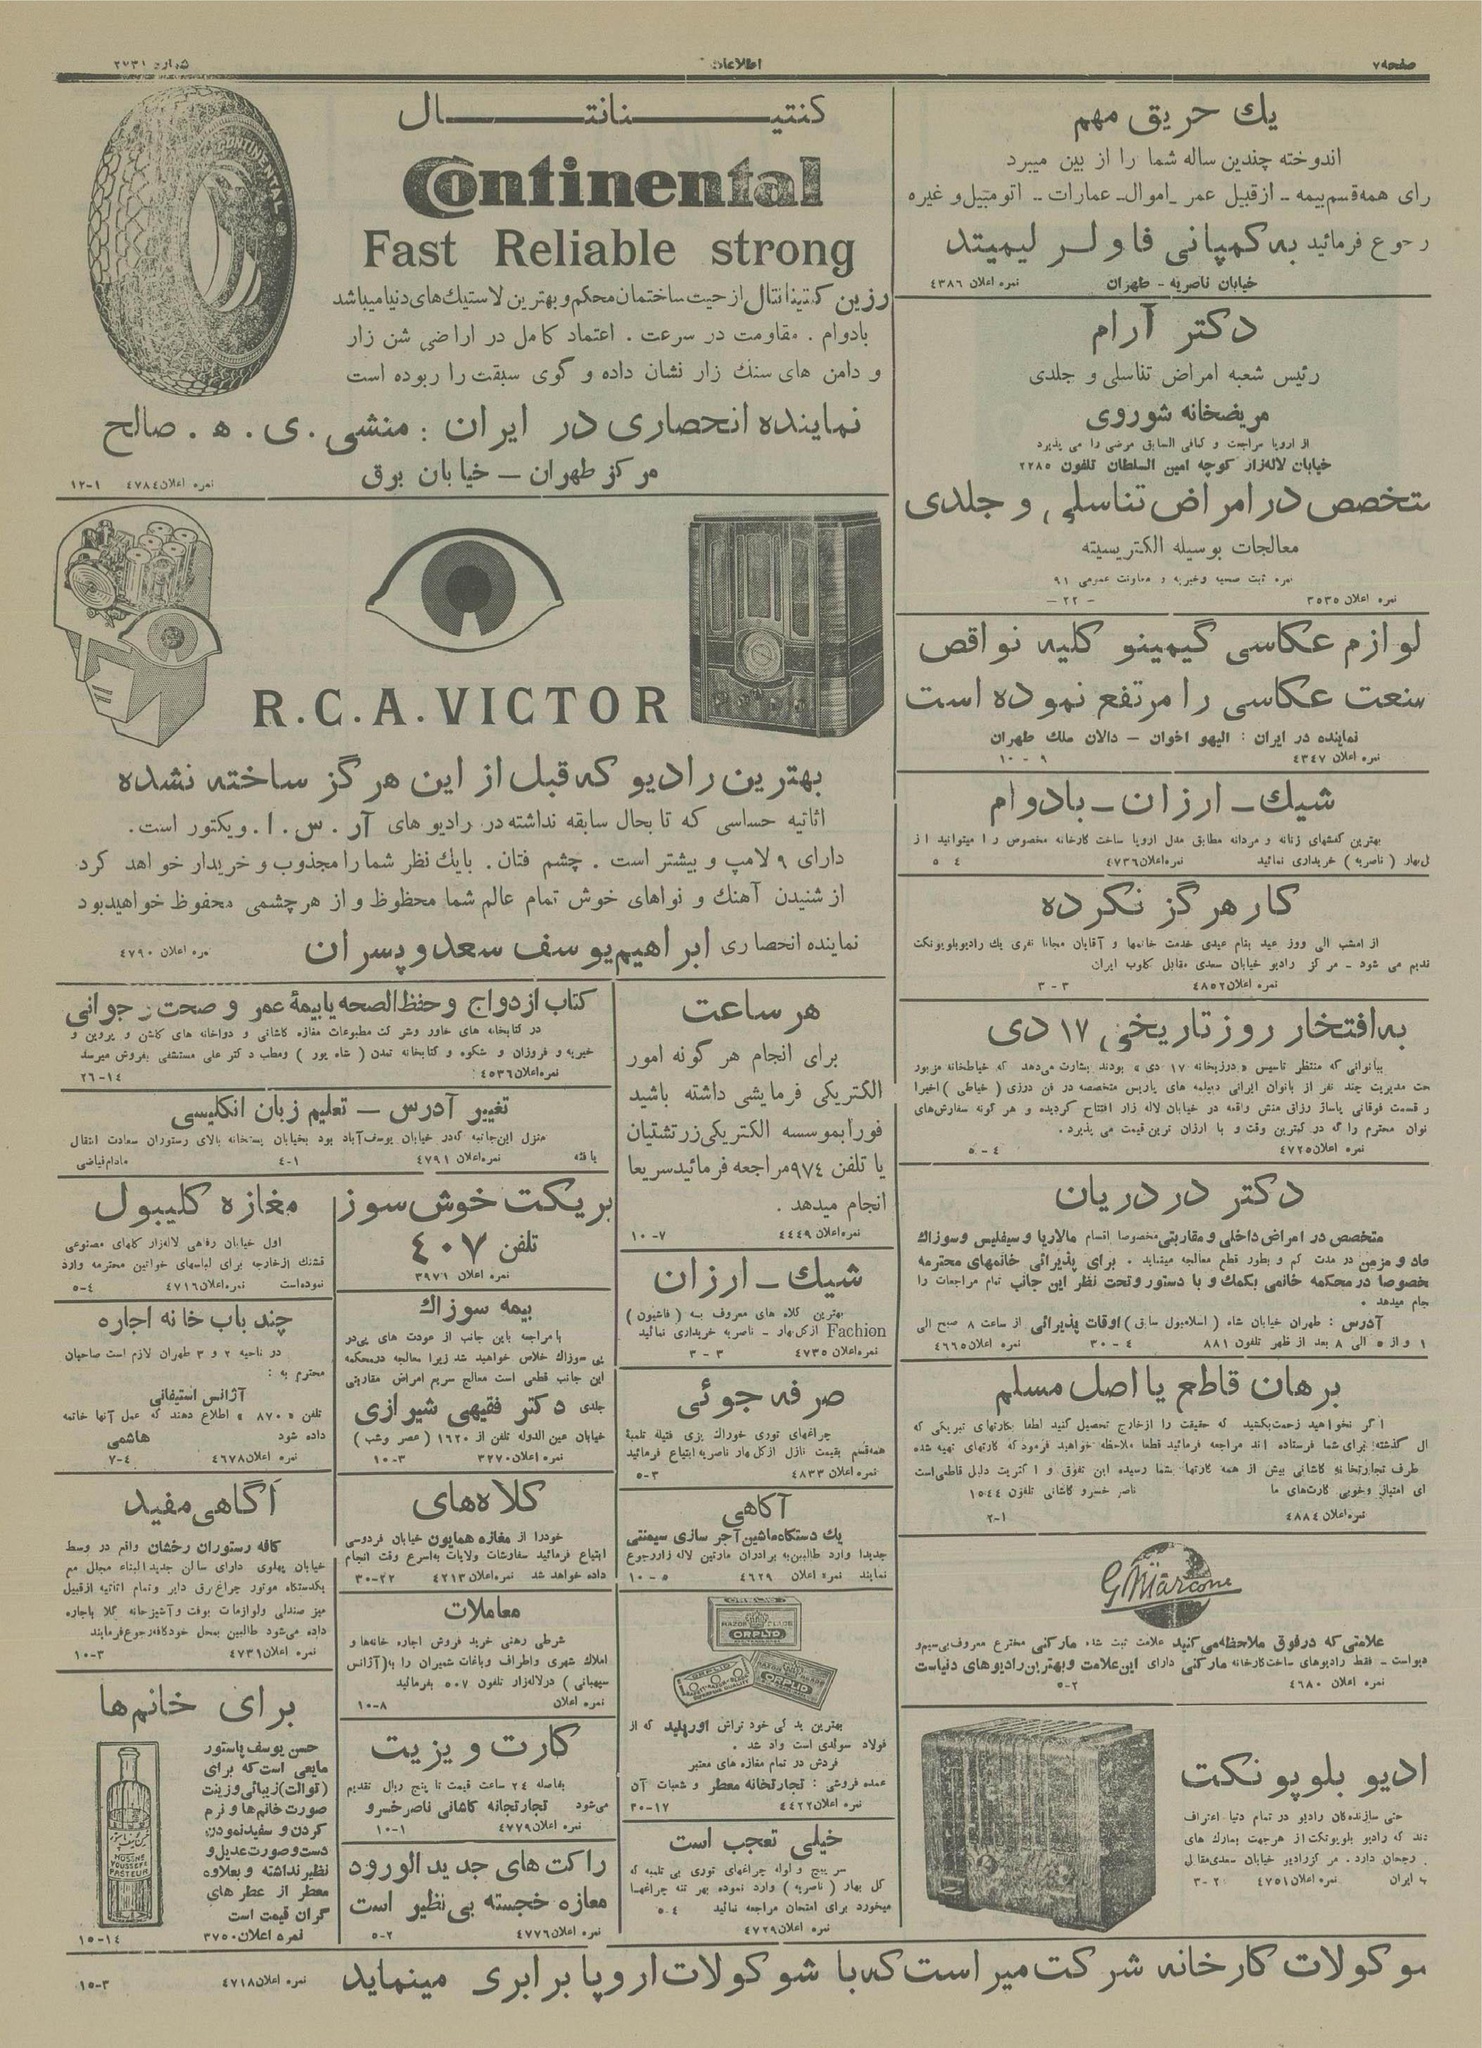 صفحه ۷
اطلاعات
شماره ۲۷۳۱
یك حریق مهم
اندوخته چندین ساله شما را از بین میبرد
رای همه قسم بیمه ـ از قبیل عمر ـ اموال ـ عمارات ـ اتومبیل و غیره
رجوع فرمائید به کمپانی فاولر لیمیتد
خیابان ناصریه - طهران
نمره اعلان ۴۳۸۶
دکتر آرام
رئیس شعبه امراض تناسلی و جلدی
مریضخانه شوروی
از اروپا مراجعت و کمافی السابق مرضی را می پذیرد
خیابان لاله‌زار کوچه امین السلطان تلفون ۲۲۸۵
تخصص در امراض تناسلی و جلدی
معالجات بوسیله الکتریسیته
نمره ثبت صحیه و خیریه و معاونت عمومی ۹۱
نمره اعلان ۳۵۳۵
- ۲۲ -
لوازم عکاسی گیمینو کلیه نواقص
سنعت عکاسی را مرتفع نموده است
نماینده در ایران : الیهو اخوان — دالان ملك طهران
نمره اعلان ۴۳۴۷
۹ - ۱۰
شیك ـ ارزان ـ بادوام
بهترین کفشهای زنانه و مردانه مطابق مدل اروپا ساخت کارخانه مخصوص را میتوانید از
ل بهار ( ناصریه ) خریداری نمائید
نمره اعلان ۴۷۳۶
۴ ۵
کار هر گز نکرده
از امشب الی روز عید بنام عیدی خدمت خانمها و آقایان مجانا نفری یك رادیو بلوپونکت
قدیم می شود - مرکز رادیو خیابان سعدی مقابل کلوب ایران
نمره اعلان ۴۸۵۲
۳ - ۳
به افتخار روز تاریخی ۱۷ دی
ببانوانی که منتظر تاسیس « درزیخانه ۱۷ دی » بودند بشارت می‌دهد که خیاطخانه مزبور
حت مدیریت چند نفر از بانوان ایرانی دیپلمه های پاریس متخصصه در فن درزی ( خیاطی ) اخیرا
ر قسمت فوقانی پاساژ رزاق منش واقعه در خیابان لاله زار افتتاح گردیده و هر گونه سفارش‌های
نوان محترم را که در کمترین وقت و با ارزان ترین قیمت می پذیرد .
نمره اعلان ۴۷۲۵
۴ - ۵
دکتر در دریان
متخصص در امراض داخلی و مقاربتی مخصوصا اقسام مالاریا و سیفلیس و سوزاك
حاد و مزمن در مدت کم و بطور قطع معالجه مینماید . برای پذیرائی خانمهای محترمه
خصوصا در محکمه خانمی بکمك و با دستور و تحت نظر این جانب تمام مراجعات را
جام میدهد .
آدرس : طهران خیابان شاه ( اسلامبول سابق ) اوقات پذیرائی از ساعت ۸ صبح الی
۱ و از ۵ الی ۸ بعد از ظهر تلفون ۸۸۱
۴ - ۳۰
نمره اعلان ۴۶۶۵
برهان قاطع یا اصل مسلم
اگر نخواهید زحمت بکشید که حقیقت را از خارج تحصیل کنید لطفا بکارتهای تبریکی که
ال گذشته برای شما فرستاده اند مراجعه فرمائید قطعا ملاحظه خواهید فرمود که کارتهای تهیه شده
طرف تجارتخانه کاشانی بیش از همه کارتها بشما رسیده این تفوق و اکثریت دلیل قاطعی است
ای امتیاز و خوبی کارت‌های ما
ناصر خسرو کاشانی تلفون ۱۵۴۴
نمره اعلان ۴۸۸۴
۱-۲
G. Marconi
علامتی که در فوق ملاحظه می کنید علامت ثبت شده مارکنی مخترع معروف بی‌سیم و
دیو است - فقط رادیوهای ساخت کارخانه مارکنی دارای این علامت و بهترین رادیو های دنیاست
نمره اعلان ۴۶۸۰
۲-۵
ادیو بلوپونکت
حتی سازنده‌گان رادیو در تمام دنیا اعتراف
دند که رادیو بلوپونکت از هر جهت بمارك های
رجحان دارد . مرکز رادیو خیابان سعدی مقابل
ایران
نمره اعلان ۴۷۵۱
۲ - ۳
کنتیــنانتــال
Continental
Fast Reliable strong
CONTINENTAL
رزین کنتیناتال از حیث ساختمان محکم و بهترین لاستیك های دنیا میباشد
بادوام . مقاومت در سرعت . اعتماد کامل در اراضی شن زار
و دامن های سنك زار نشان داده و گوی سبقت را ربوده است
نماینده انحصاری در ایران : منشی . ی . ه . صالح
مرکز طهران — خیابان برق
نمره اعلان ۴۷۸۴
۱-۱۲
R.C.A. VICTOR
بهترین رادیو که قبل از این هرگز ساخته نشده
اثاثیه حساسی که تا بحال سابقه نداشته در رادیو های آر . س . ا . ویکتور است .
دارای ۹ لامپ و بیشتر است . چشم فتان . بایك نظر شما را مجذوب و خریدار خواهد کرد
از شنیدن آهنك و نواهای خوش تمام عالم شما محظوظ و از هر چشمی محفوظ خواهید بود
نماینده انحصاری ابراهیم یوسف سعد و پسران
نمره اعلان ۴۷۹۰
هر ساعت
برای انجام هر گونه امور
الکتریکی فرمایشی داشته باشید
فورا بموسسه الکتریکی زرتشتیان
یا تلفن ۹۷۴ مراجعه فرمائید سریعا
انجام میدهد .
نمره اعلان ۴۴۴۹
۷-۱۰
شیك ـ ارزان
بهترین کلاه های معروف به ( فاشیون )
Fachion از کل بهار - ناصریه خریداری نمائید
نمره اعلان ۴۷۳۵
۳ - ۳
صرفه جوئی
چراغهای توری خوراك پزی فتیله تلمبهٔ
همه قسم بقیمت نازل از کل بهار ناصریه ابتیاع فرمائید
نمره اعلان ۴۸۳۳
۳-۵
آگاهی
یك دستگاه ماشین آجر سازی سیمنتی
جدیدا وارد طالبین به برادران مارتین لاله زار رجوع
نمایند نمره اعلان ۴۶۲۹
۵ - ۱۰
RAZOR BLADE
ORPLID
ORPLID
ORPLID
بهترین یدکی خود تراش اورپلید که از
فولاد سوئدی است وارد شد .
فروش در تمام مغازه های معتبر
عمده فروشی : تجارتخانه معطر و شعبات آن
نمره اعلان ۴۴۲۲
۱۷-۳۰
خیلی تعجب است
سر پیچ و لوله چراغهای توری بی تلمبه که
کل بهار ( ناصریه ) وارد نموده بهر تنه چراغها
میخورد برای امتحان مراجعه نمائید
۴ ۵
نمره اعلان ۴۷۲۹
کتاب ازدواج و حفظ الصحه یا بیمهٔ عمر و صحت و جوانی
در کتابخانه های خاور و شرکت مطبوعات مغازه کاشانی و دواخانه های کاشن و پروین و
خیریه و فروزان و شکوه و کتابخانه تمدن ( شاه پور ) و مطب دکتر علی مستشفی بفروش میرسد
نمره اعلان ۴۵۳۶
۱۴-۲۶
تغییر آدرس — تعلیم زبان انکلیسی
منزل این جانبه که در خیابان یوسف آباد بود بخیابان پستخانه بالای رستوران سعادت انتقال
یافته
نمره اعلان ۴۷۹۱
۱-۴
مادام فیاضی
بریکت خوش سوز
تلفن ۴۰۷
نمره اعلان ۳۹۷۱
بیمه سوزاك
با مراجعه باین جانب از عودت های پی در
پی سوزاك خلاص خواهید شد زیرا معالجه در محکمه
این جانب قطعی است معالج سریم امراض مقاربتی
جلدی دکتر فقیهی شیرازی
خیابان عین الدوله تلفن از ۱۶۲۰ ( عصر و شب )
نمره اعلان ۳۲۷۰
۳-۱۰
کلاه‌های
خود را از مغازه همایون خیابان فردوسی
ابتیاع فرمائید سفارشات ولایات به اسرع وقت انجام
داده خواهد شد نمره اعلان ۴۲۱۳
۲۲-۳۰
معاملات
شرطی رهنی خرید فروش اجاره خانه‌ها و
املاك شهری و اطراف و باغات شمیران را به ( آژانس
سیهبانی ) در لاله زار تلفون ۵۰۷ بفرمائید
نمره اعلان
۸-۱۰
کارت ویزیت
بفاصله ۲۴ ساعت قیمت تا پنج ریال تقدیم
می‌شود تجارتخانه کاشانی ناصر خسرو
نمره اعلان ۴۷۷۹
۱-۱۰
راکت های جدید الورود
مغازه خجسته بی نظیر است
نمره اعلان ۴۷۷۶
۲-۵
مغازه کلیبول
اول خیابان رفاهی لاله‌زار گلهای مصنوعی
قشنك از خارجه برای لباسهای خواتین محترمه وارد
نموده است نمره اعلان ۴۷۱۶
۴-۵
چند باب خانه اجاره
در ناحیه ۲ و ۳ طهران لازم است صاحبان
محترم به :
آژانس استیفانی
تلفن « ۸۷۰ » اطلاع دهند که عمل آنها خاتمه
داده شود
هاشمی
نمره اعلان ۴۶۷۸
۴-۷
آگاهی مفید
کافه رستوران رخشان واقع در وسط
خیابان پهلوی دارای سالن جدید البناء مجلل مع
یکدستگاه موتور چراغ برق دایر و تمام اثاثیه از قبیل
میز صندلی و لوازمات بوفت و آشپزخانه کلا باجاره
داده می‌شود طالبین بمحل خود کافه رجوع فرمایند
نمره اعلان ۴۷۳۱
۳-۱۰
برای خانم ها
حسن یوسف پاستور
مایعی است که برای
(توالت) زیبائی و زینت
صورت خانم ها و نرم
کردن و سفید نمودن
دست و صورت عدیل و
نظیر نداشته و بعلاوه
معطر از عطر های
گران قیمت است
نمره اعلان ۳۷۵۰
۱۴-۱۵
HUSNE
YOUSSEFE
PASTEUR
موکولات کارخانه شرکت میر است که با شوکولات اروپا برابری مینماید
نمره اعلان ۴۷۱۸
۳-۱۵